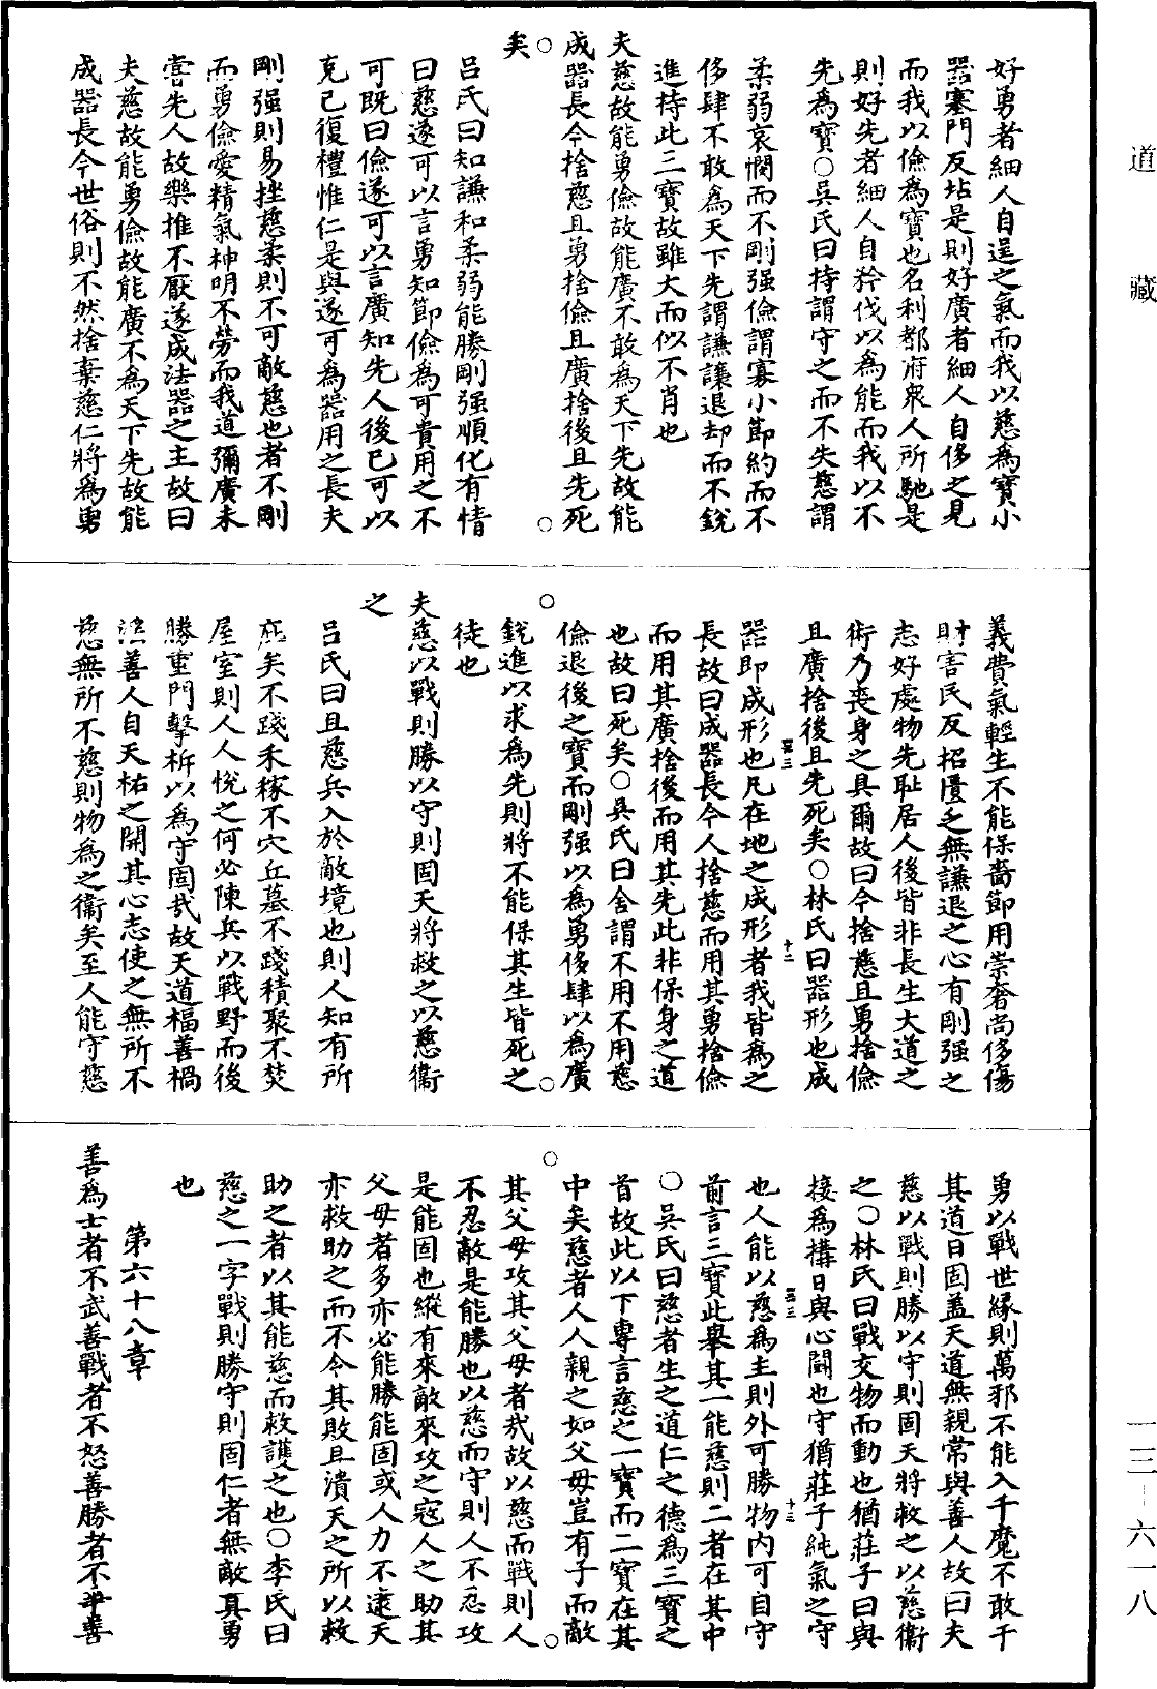 道藏
好勇者細人自逞之氣而我以慈為寶小
器塞門反坫是則好廣者細人自侈之見
而我以儉為寶也名利都府衆人所馳是
則好先者細人自矜伐以為能而我以不
先為寶○吳氏曰持謂守之而不失慈謂
柔弱哀憫而不剛强儉謂寡小節約而不
侈肆不敢為天下先謂謙讓退却而不銳
進持此三寶故雖大而似不肖也
夫慈故能勇儉故能廣不敢為天下先故能
成器長今捨慈且勇捨儉且廣捨後且先死
矣
呂氏曰知謙和柔弱能勝剛强順化有情
曰慈遂可以言勇知節儉為可貴用之不
可既曰儉遂可以言廣知先人後已可以
克己復禮惟仁是與遂可為器用之長夫
剛强則易挫慈柔則不可敵慈也者不剛
而勇儉愛精氣神明不勞而我道彌廣未
嘗先人故樂推不厭遂成法器之主故曰
夫慈故能勇儉故能廣不為天下先故能
成器長今世俗則不然捨棄慈仁將為勇
義費氣輕生不能保嗇節用崇奢尚侈傷
財害民反招匱乏無謙退之心有剛强之
志好處物先恥居人後皆非長生大道之
術乃喪身之具爾故曰今捨慈且勇捨儉
且廣捨後且先死矣○林氏曰器形也成
器即成形也凡在地之成形者我皆為之
長故曰成器長今人捨慈而用其勇捨儉
而用其廣捨後而用其先此非保身之道
也故曰死矣○吳氏曰舍謂不用不用慈
儉退後之寶而剛强以為勇侈肆以為廣
銳進以求為先則將不能保其生皆死之
徒也
夫慈以戰則勝以守則固天將救之以慈衞
之
呂氏曰且慈兵入於敵境也則人知有所
庇矣不踐禾稼不穴丘墓不踐積聚不焚
屋室則人人悅之何必陳兵以戰野而後
勝重門擊柝以為守固哉故天道福善禍
淫善人自天祐之開其心志使之無所不
慈無所不慈則物為之衞矣至人能守慈
勇以戰世緣則萬邪不能入千魔不敢干
其道日固盖天道無親常與善人故曰夫
慈以戰則勝以守則固天將救之以慈衞
之○林氏曰戰交物而動也猶莊子曰與
接為搆日與心鬬也守猶莊子純氣之守
也人能以慈為主則外可勝物内可自守
前言三寶此舉其一能慈則二者在其中
○吳氏曰慈者生之道仁之德為三寶之
首故此以下專言慈之一寶而二寶在其
中矣慈者人人親之如父母豈有子而敵
其父母攻其父母者哉故以慈而戰則人
不忍敵是能勝也以慈而守則人不忍攻
是能固也縱有來敵來攻之寇人之助其
父母者多亦必能勝能固或人力不逮天
亦救助之而不令其敗且潰天之所以救
助之者以其能慈而救護之也○李氏曰
慈之一字戰則勝守則固仁者無敵真勇
也
第六十八章
善為士者不武善戰者不怒善勝者不爭善
一三－六一八